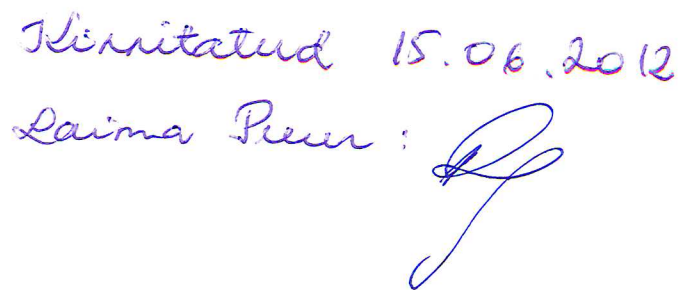 Kinnitatud 15.06.2012
Laima Puur: